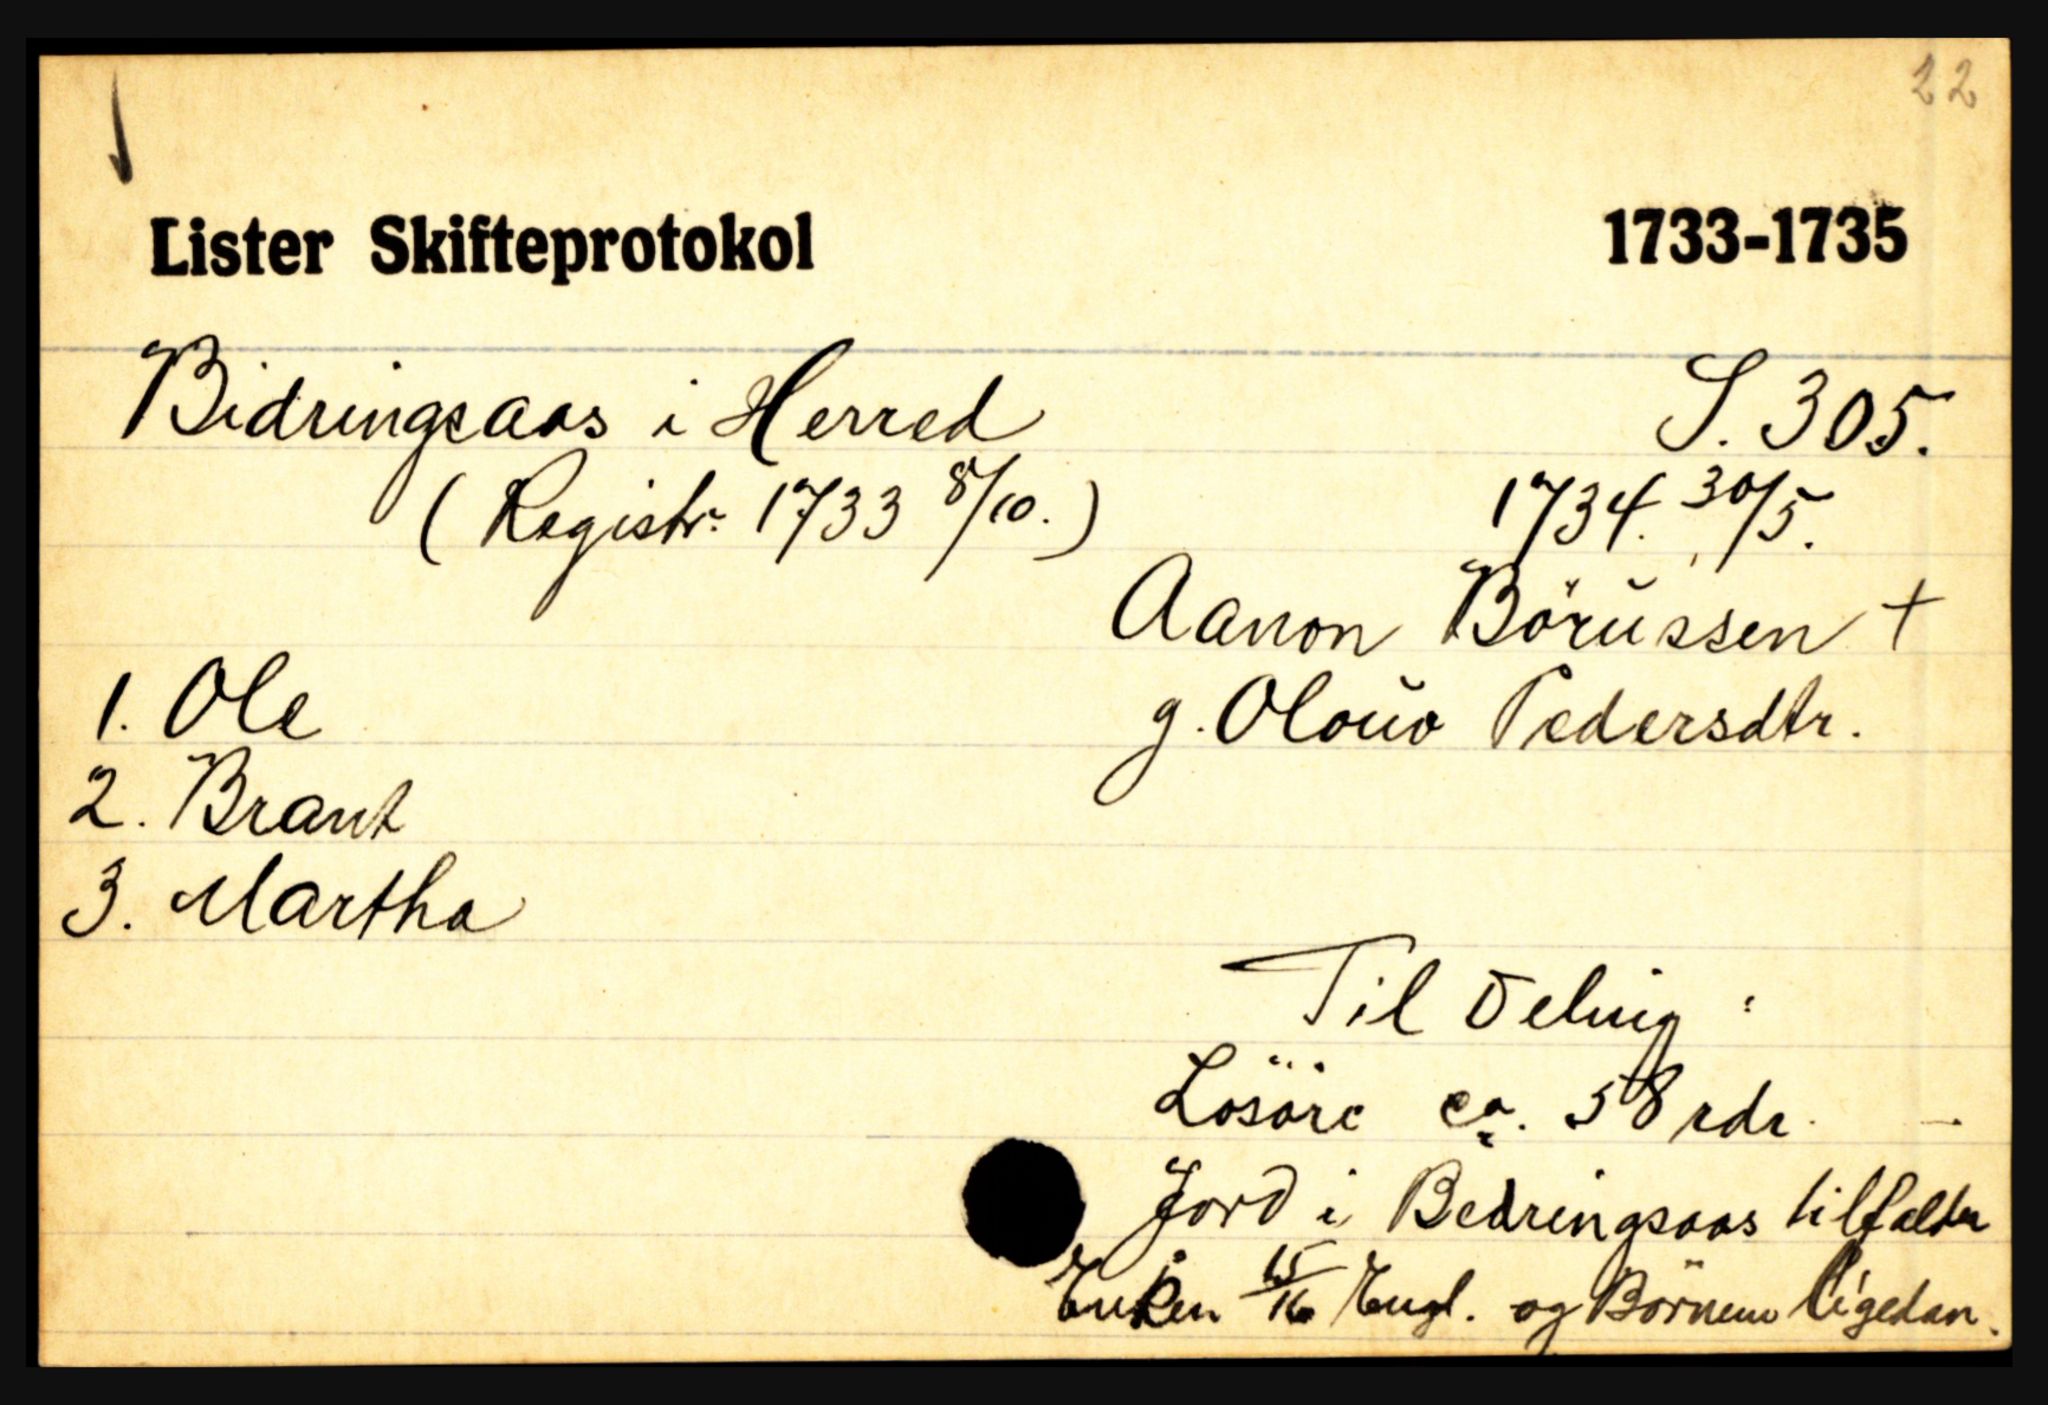 22
Lister Skifteprotokol 1733-1735
Bidringsaas i Herred S. 305.
(Registr. 1733 8/10.) 1734. 30/5.
Aanon Börŭssen +
1. Ole g. Oloŭv Pedersdtr.
2. Brant
3. Martha
Til Deling:
Lösöre ca. 58 rdr.
Jord i Bedringsaas tilfalder
Enken 15/16 Engl. og Börnene ligedan.